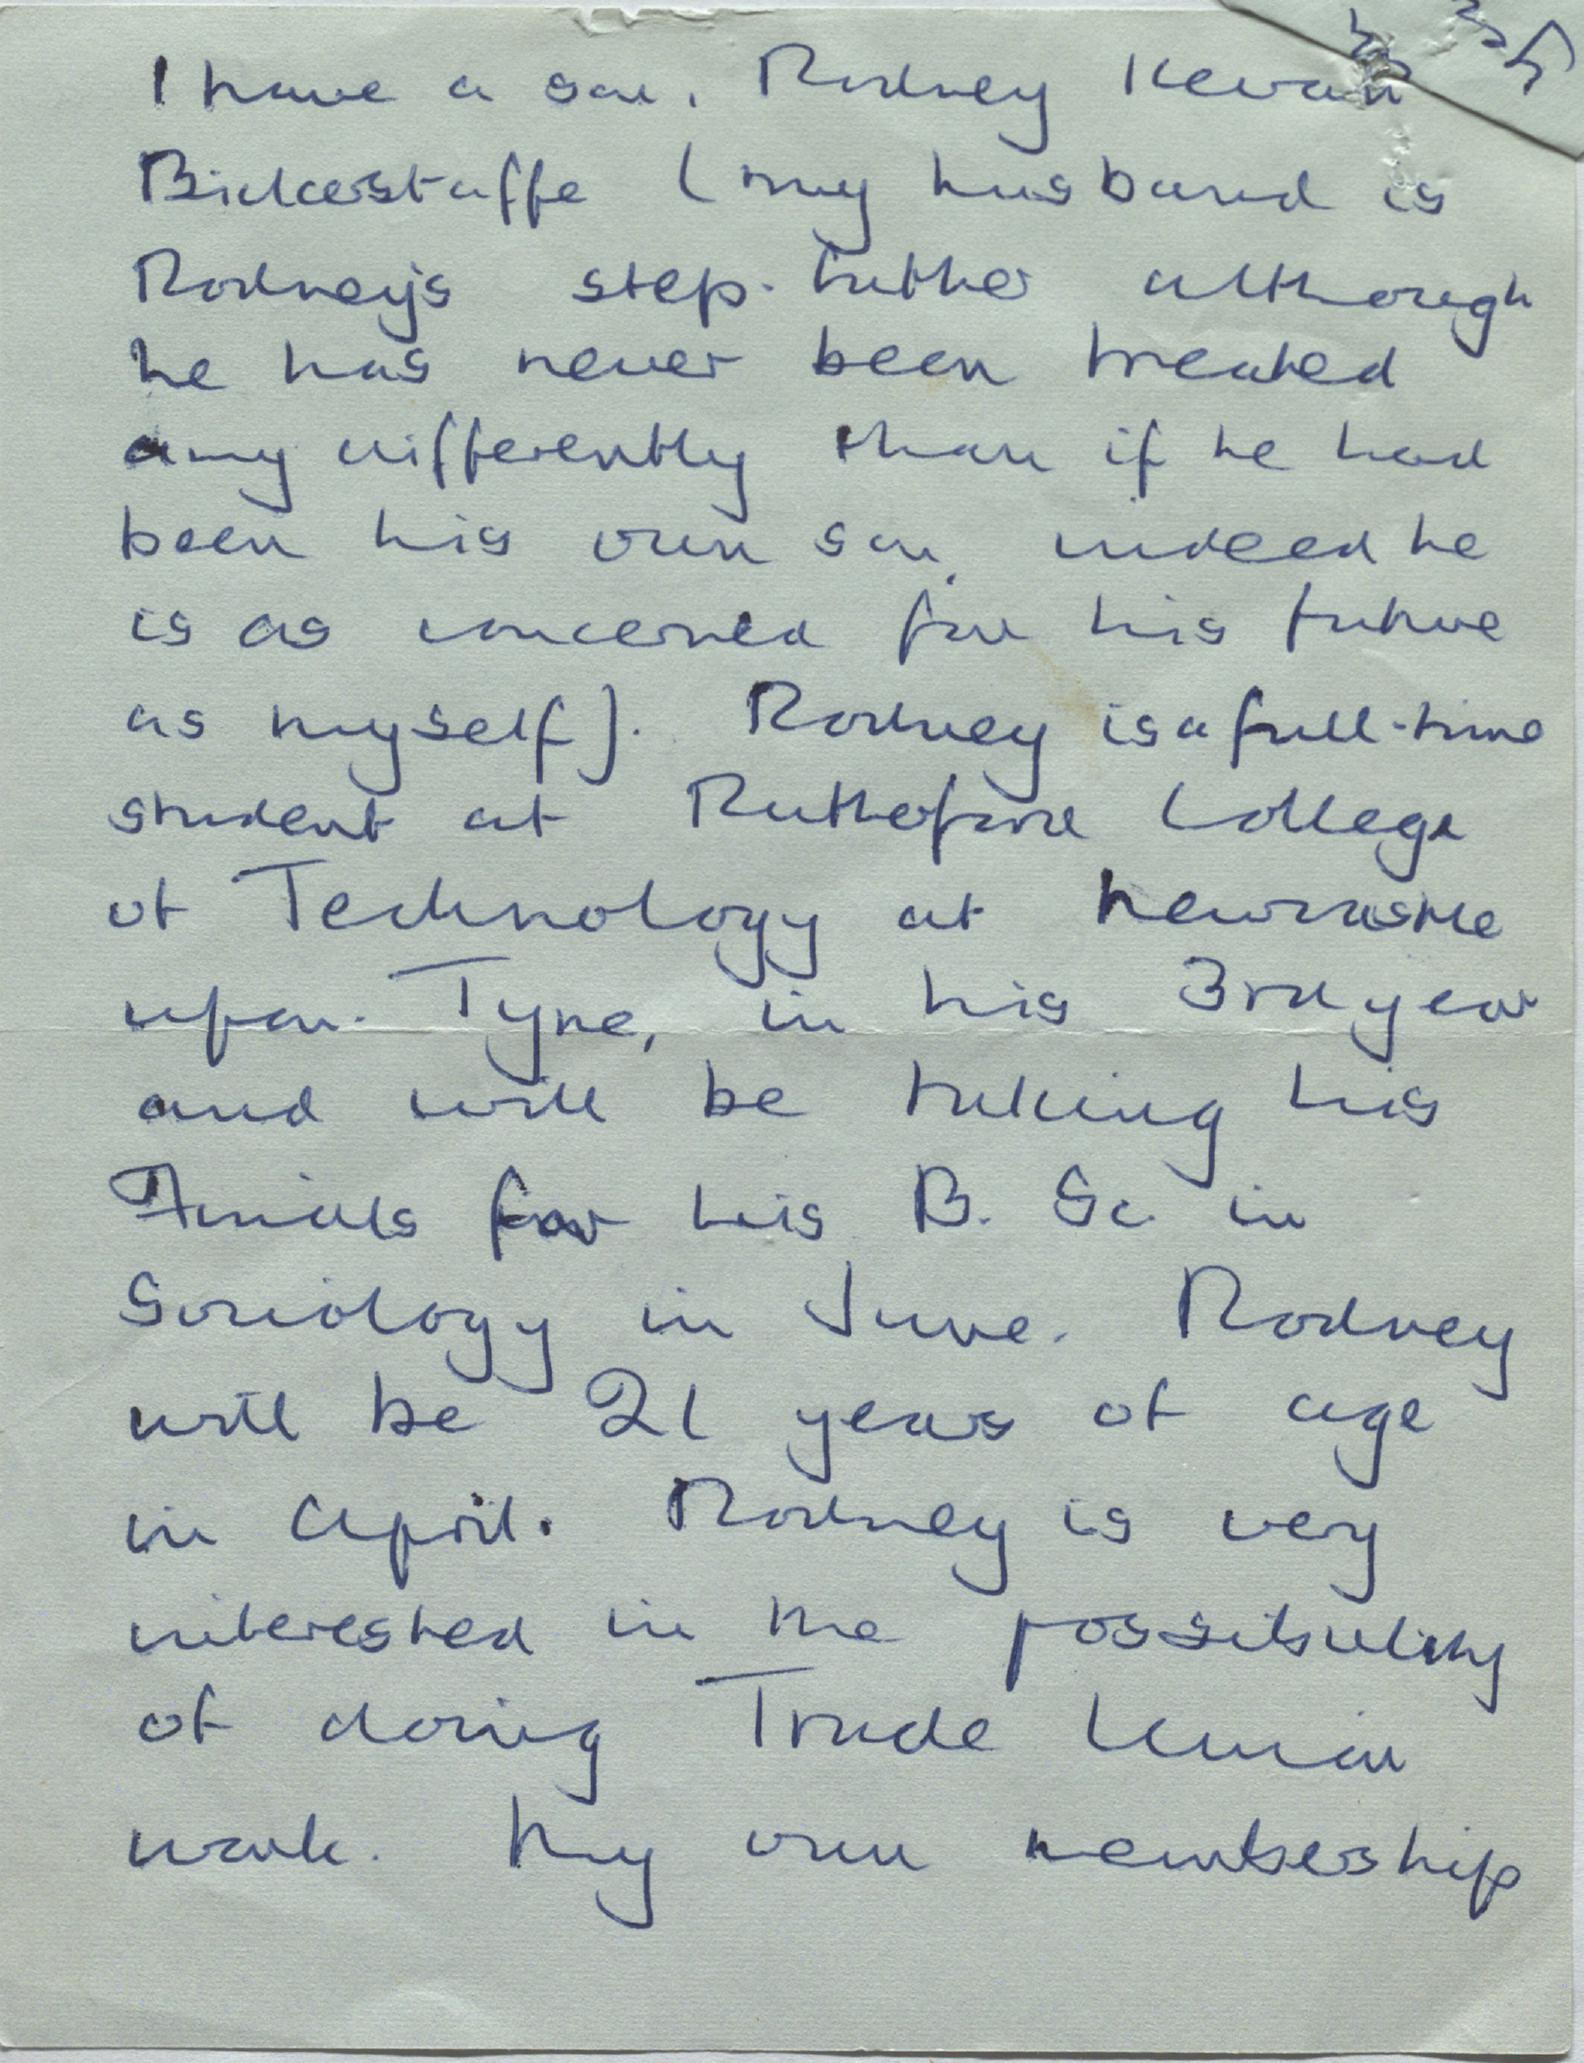 I have a son, Rodney Kevan
Bickerstaffe (my husband is
Rodney's step-father although
he has never been treated
any differently than if he had
been his own son, indeed he
is as concerned for his future
as myself). Rodney is a full-time
student at Rutheford College
of Technology at Newcastle
upon-Tyne, in his 3rd year
and will be taking his
Finals for his B. Sc. in
Sociology in June. Rodney
will be 21 years of age
in April. Rodney is very
interested in the possibility
of doing Trade Union
work. My own membership